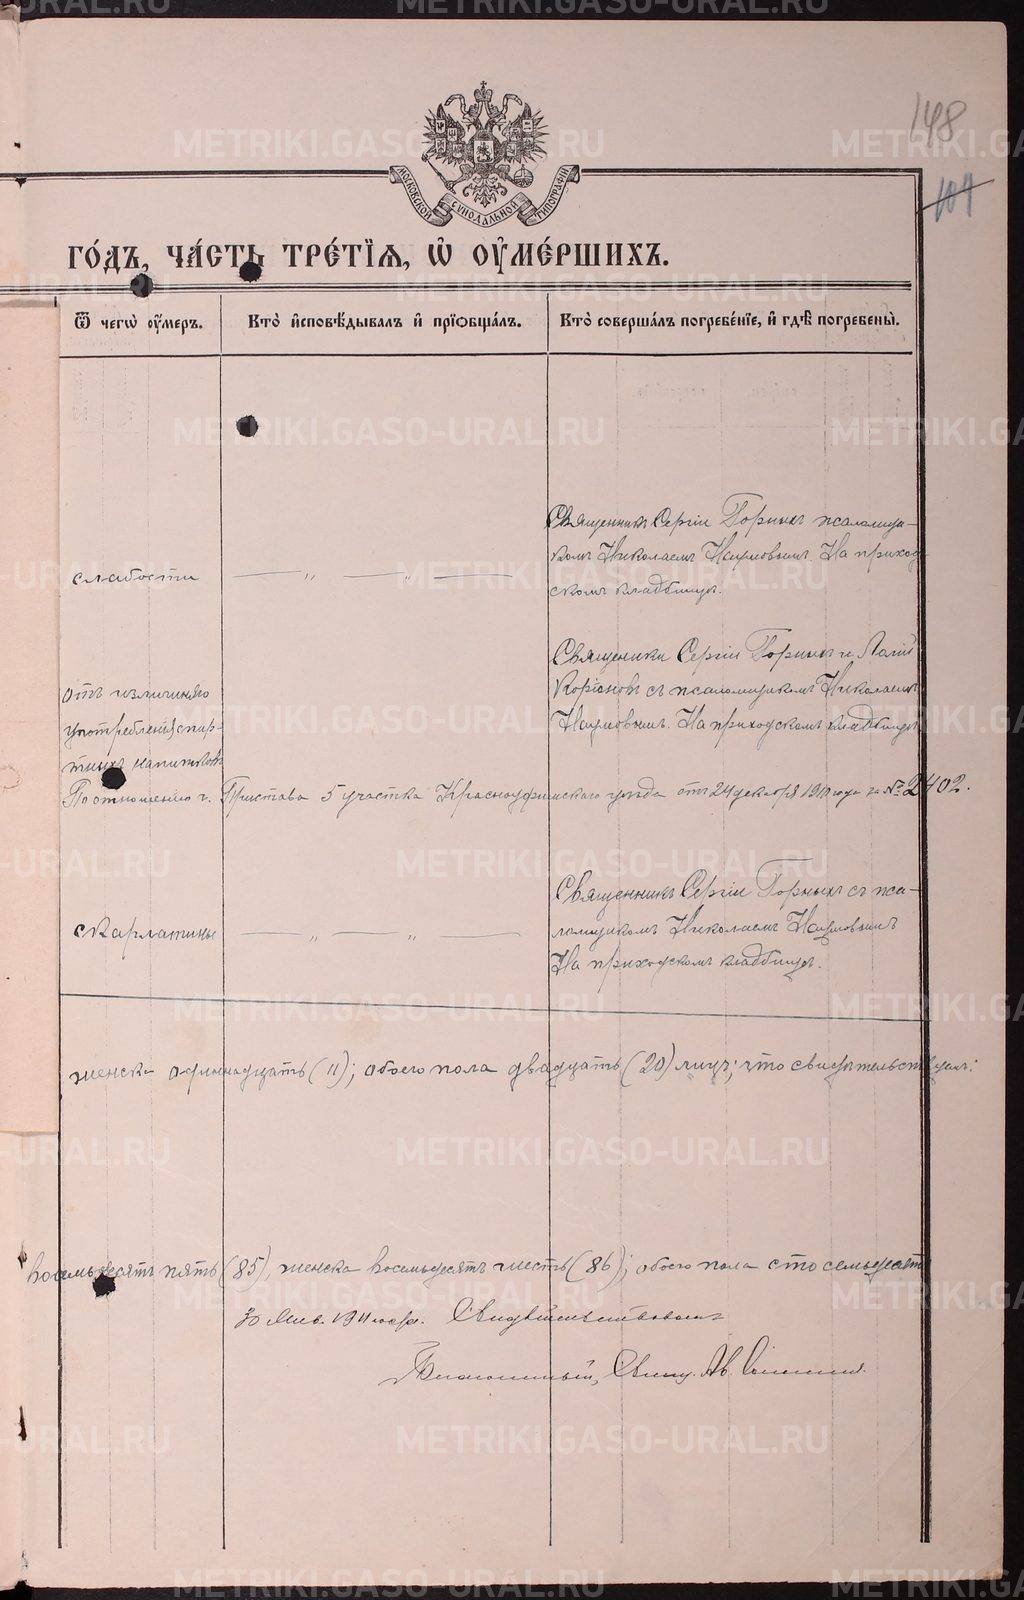 148
101
МОСКОВСКОЙ СѴНОДАЛЬНОЙ ТИПОГРАФІИ
ГО́ДЪ, ЧА́СТЬ ТРЕ́ТІЯ, Ѽ ОУ҆МЕ́РШИХЪ.
Ѿ чегѡ̀ оу҆́меръ.
Кто̀ и҆сповѣ́дывалъ и҆ прїѡбща́лъ.
Кто̀ соверша́лъ погребе́нїе, и҆ гдѣ̀ погребены̀.
слабости
Священникъ Сергій Горныхъ псаломщи-
комъ Николаемъ Наумовымъ. На приход
скомъ кладбищѣ.
отъ излишняго
употребленія спир-
тныхъ напитковъ
Священики Сергій Горныхъ и
съ псаломщикомъ Николаемъ
Наумовымъ. На приходскомъ кладбищѣ
По отношенію г. Пристава 5 участка Красноуфимскаго уѣзда отъ 24 декабря 1910 года за № 2402.
скарлатины
Священникъ Сергій Горныхъ съ пса-
ломщикомъ Николаемъ Наумовымъ
На приходскомъ кладбищѣ.
женска одиннадцать (11); обоего пола двадцать (20) лицъ; что свидѣтельствуемъ:
восемьдесятъ пять (85), женска восемьдесятъ шесть (86); обоего пола сто семьдесят
30 Янв. 1911 года. Свидѣтельствовалъ
Благочинный, Свящ. Ав.